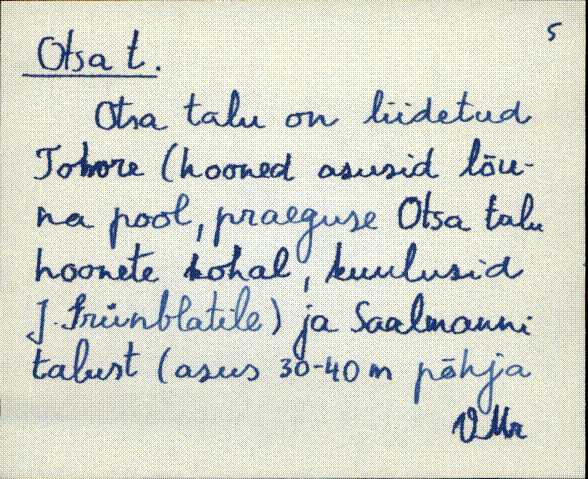 5
Otsa t.
Otsa talu on liidetud
Tohvre (hooned asusid lõu-
na pool, praeguse Otsa talu
hoonete kohal, kuulusid
J. Prünblatile) ja Saalmanni
talust (asus 30-40 m põhja
VMr